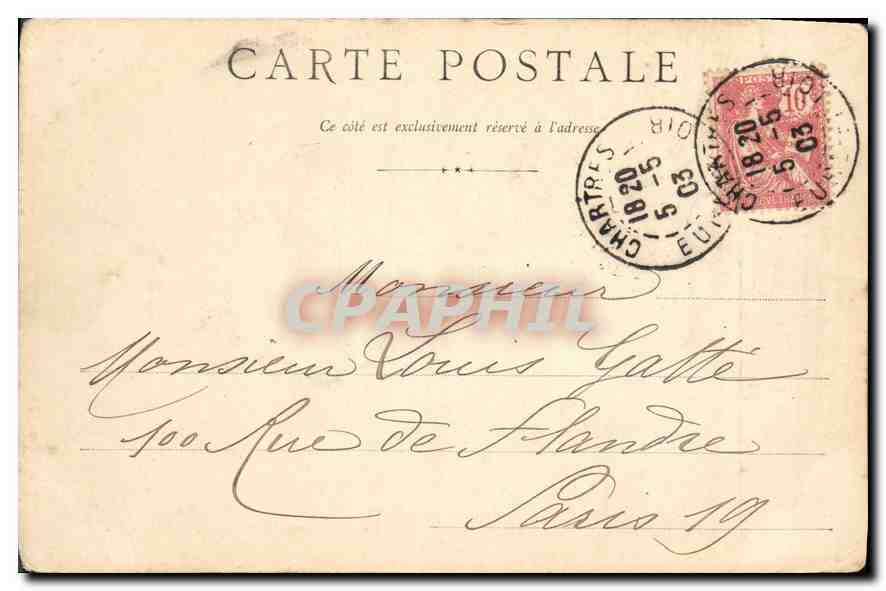 CARTE POSTALE
Ce côté est exclusivement réservé à l'adresse
POSTES
10
CHARTRES
18 20
5 -5
03
EURE
LOIR
CHARTRES
18 20
5 -5
03
EURE
LOIR
Monsieur
CPAPHIL
Monsieur Louis Gatté
100 Rue de Flandre
Paris 19